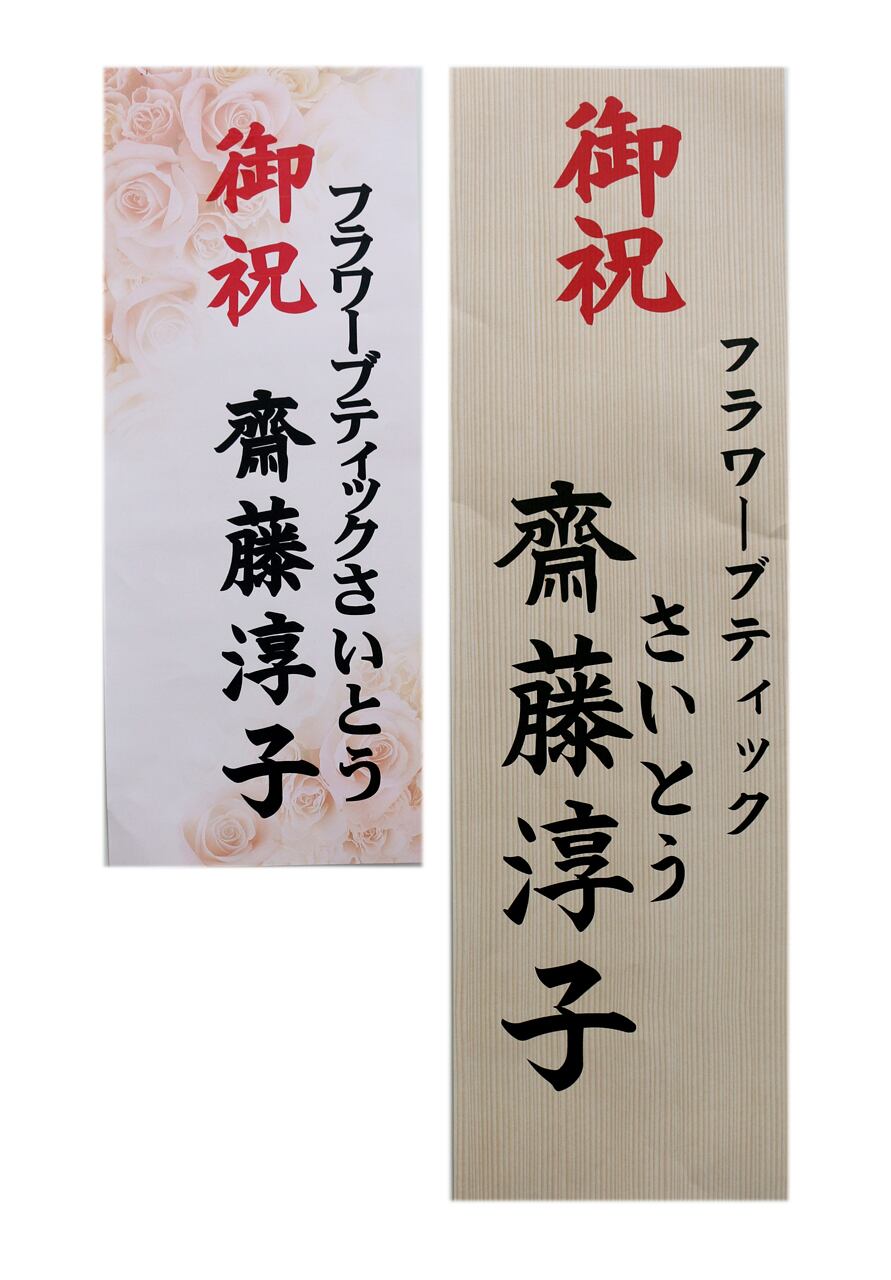 御祝
フラワーブティックさいとう
齋藤淳子
御祝
フラワーブティック
さいとう
齋藤淳子